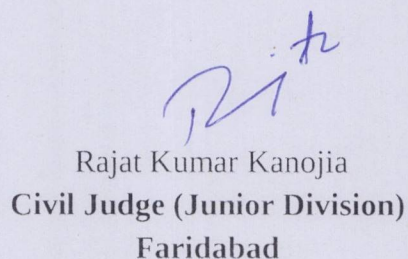 Rajat Kumar Kanojia
Civil Judge (Junior Division)
Faridabad